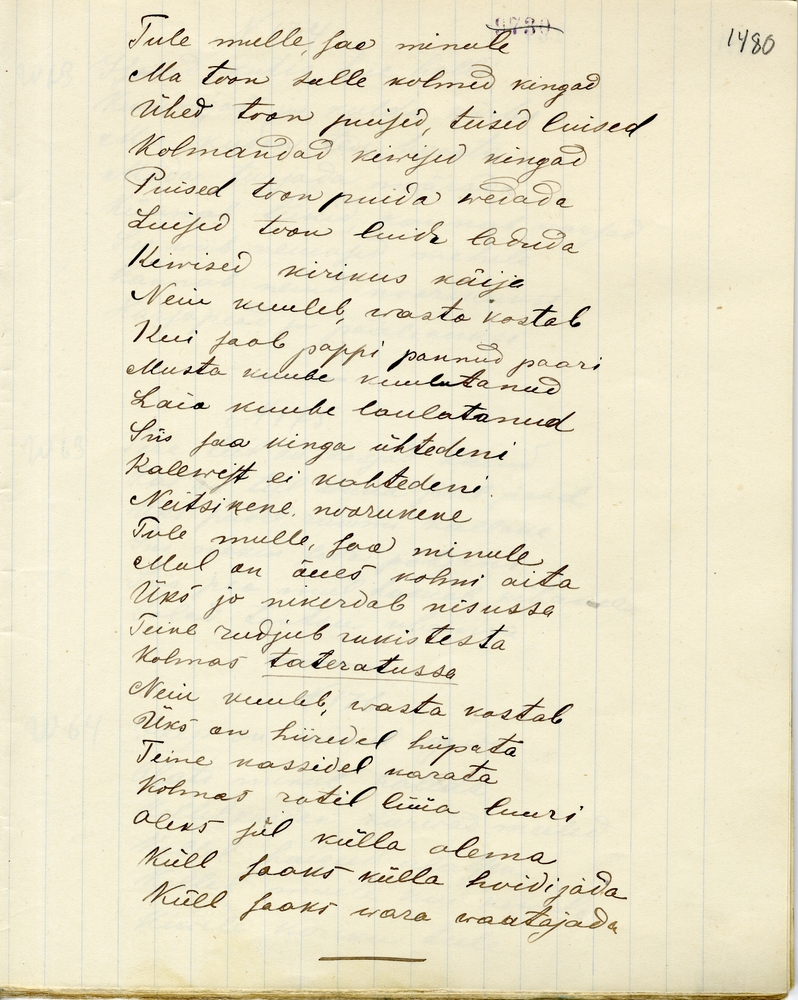 9730
1480
Tule mulle, saa minule
Ma toon sulle kolmed kingad
Ühed toon puised, teised luised
Kolmandad kiwised kingad
Puised toon puida wedada
Luised toon luida laduda
Kiwised kirikus käija
Neiu kuuleb, wasta kostab
Kui saab pappi pannud paari
Musta kuube kuulutanud
Laia kuube laulatanud
Siis saa kinga ühtedeni
Kalewist ei kahtedeni.
Neitsikene, noorukene
Tule mulle, saa minule
Mul on õues kolmi aita
Üks jo nikerdab nisussa
Teine rudjub rukistesta
Kolmas tateratussa
Neiu kuuleb, wasta kostab
Üks on hiiredel hüpata
Teine kassidel karata
Kolmas rotil lüüa luuri
Oleks sul külla olema
Küll saaks külla hoidijada
Küll saaks wara waatajada